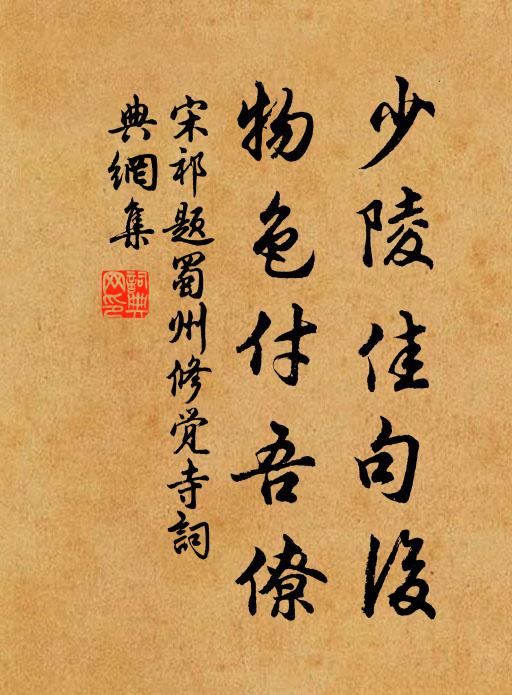 少陵佳句後
物色付吾僚
宋祁題蜀州修觉寺詞
典網集
詞典網印